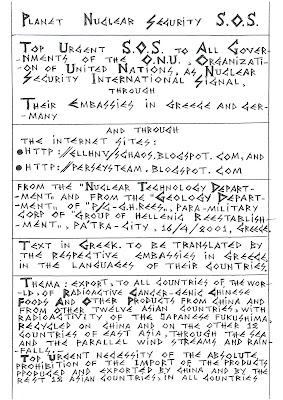 Planet Nuclear Security S.O.S.
Top Urgent S.O.S. to All Gover-
nments of the O.N.U., Organizati-
on of United Nations, as Nuclear
Security International Signal,
through
Their Embassies in Greece and Ger-
many
and through
the internet sites:
●http://ellhnv/schaos.blogspot.com, and
●http://perseysteam.blogspot.com
From the "Nuclear Technology Depart-
ment" and from the "Geology Depart-
ment" of "P/L-G.H.Rees", para-military
corp of "Group of Hellenic Reestablish-
ment", Pa'tra-City, 16/4/2001, Greece.
Text in Greek. To be translated by
the respective embassies in Greece
in the languages of their countries.
Thema: export, to all countries of the wor-
ld, of Radioactive Cancer-Genic Chinese
Foods And Other Products from China and
from other twelve Asian countries, with
radioactivity of the Japanese Fukushima,
recycled on China and on the other 12
countries of East Asia, through the sea
and the parallel wind streams and rain-
falls.—
Top urgent necessity of the absolute
prohibition of the import of the products
produced and exported by China and by the
rest 12 Asian countries, in all countries